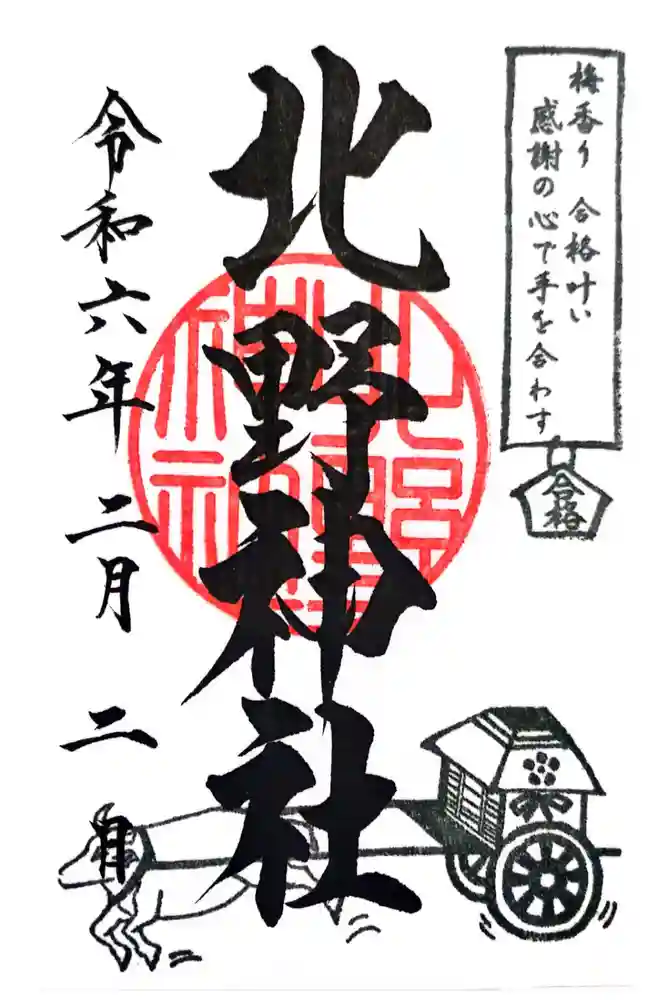 梅香り 合格叶い
感謝の心で手を合わす
合格
北野神社
令和六年 二月 二日